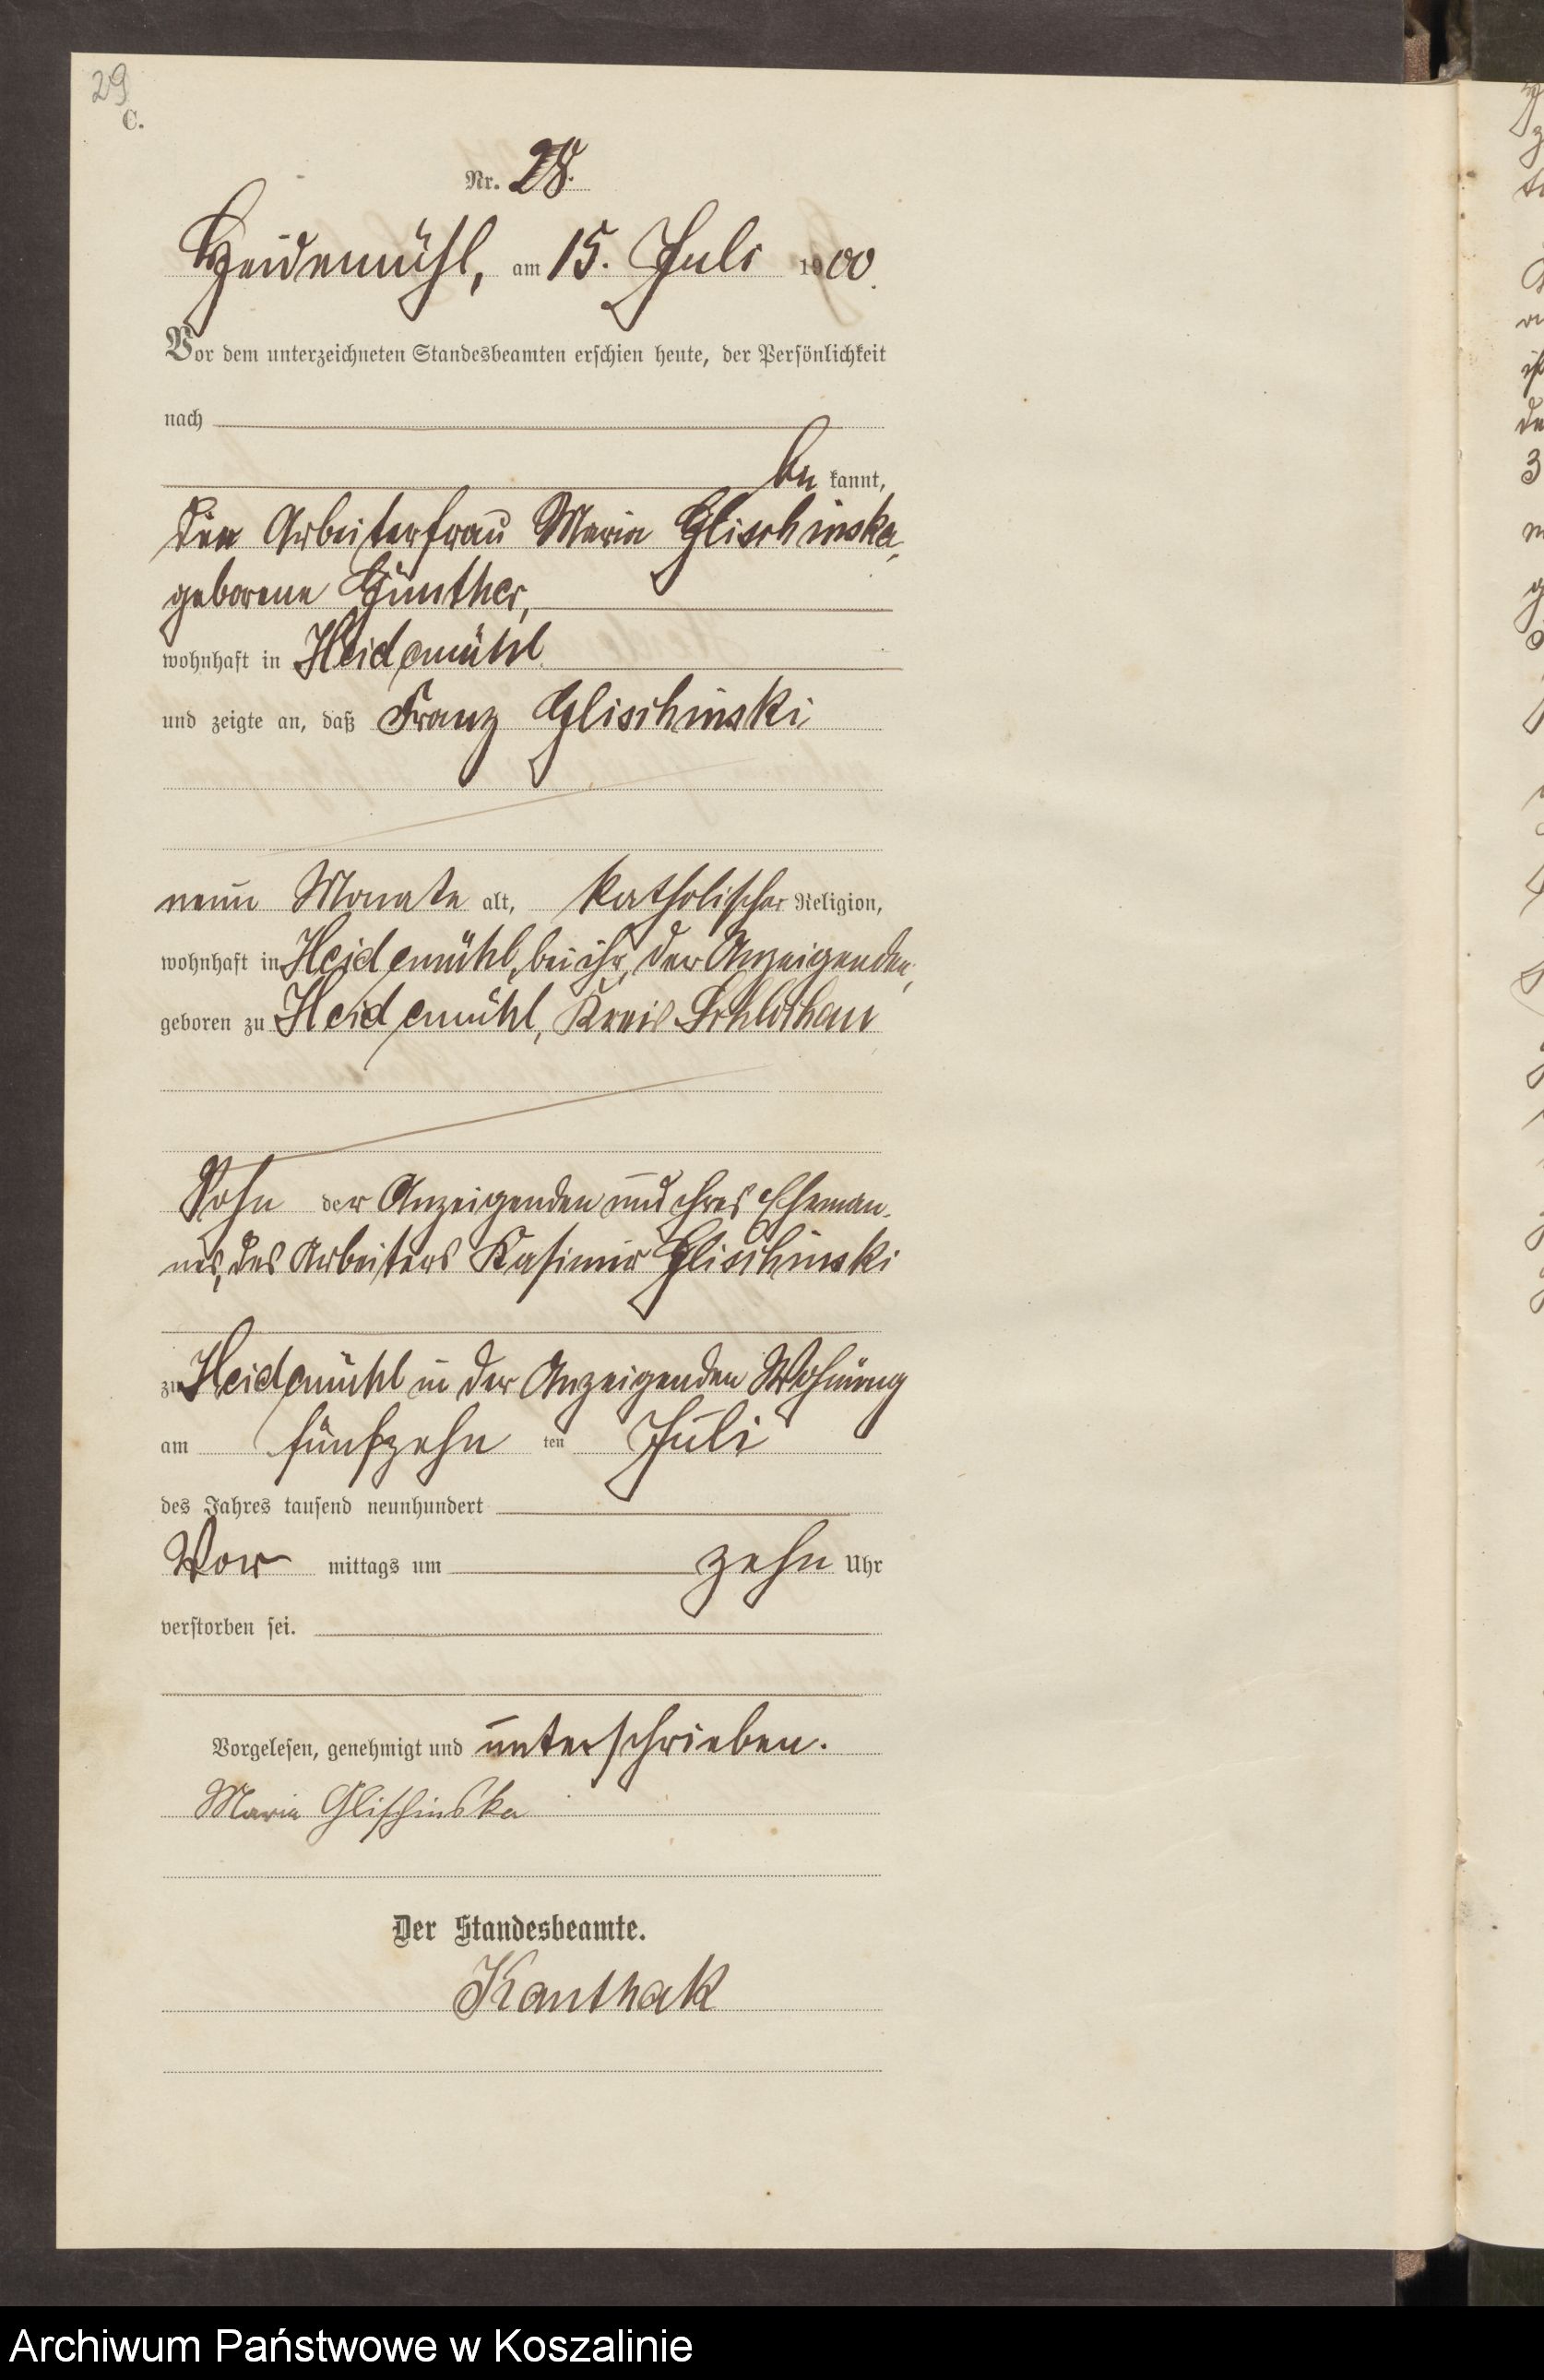 29
C.
Nr. 28.
Heidemühl, am 15. Juli 1900.
Vor dem unterzeichneten Standesbeamten erschien heute, der Persönlichkeit
nach
be kannt,
die Arbeiterfrau Maria Glischinska,
geborene Günther,
wohnhaft in Heidemühl
und zeigte an, daß Franz Glischinski
neun Monate alt, katholischer Religion,
wohnhaft in Heidemühl, bei ihr, der Anzeigenden,
geboren zu Heidemühl, Kreis Schlochau
Sohn der Anzeigenden und ihres Eheman-
nes, des Arbeiters Kasimir Glischinski
zu Heidemühl in der Anzeigenden Wohnung
am fünfzehn ten Juli
des Jahres tausend neunhundert
Vor mittags um zehn Uhr
verstorben sei.
Vorgelesen, genehmigt und unterschrieben.
Maria Glischinska
Der Standesbeamte.
Kanthak
Archiwum Państwowe w Koszalinie